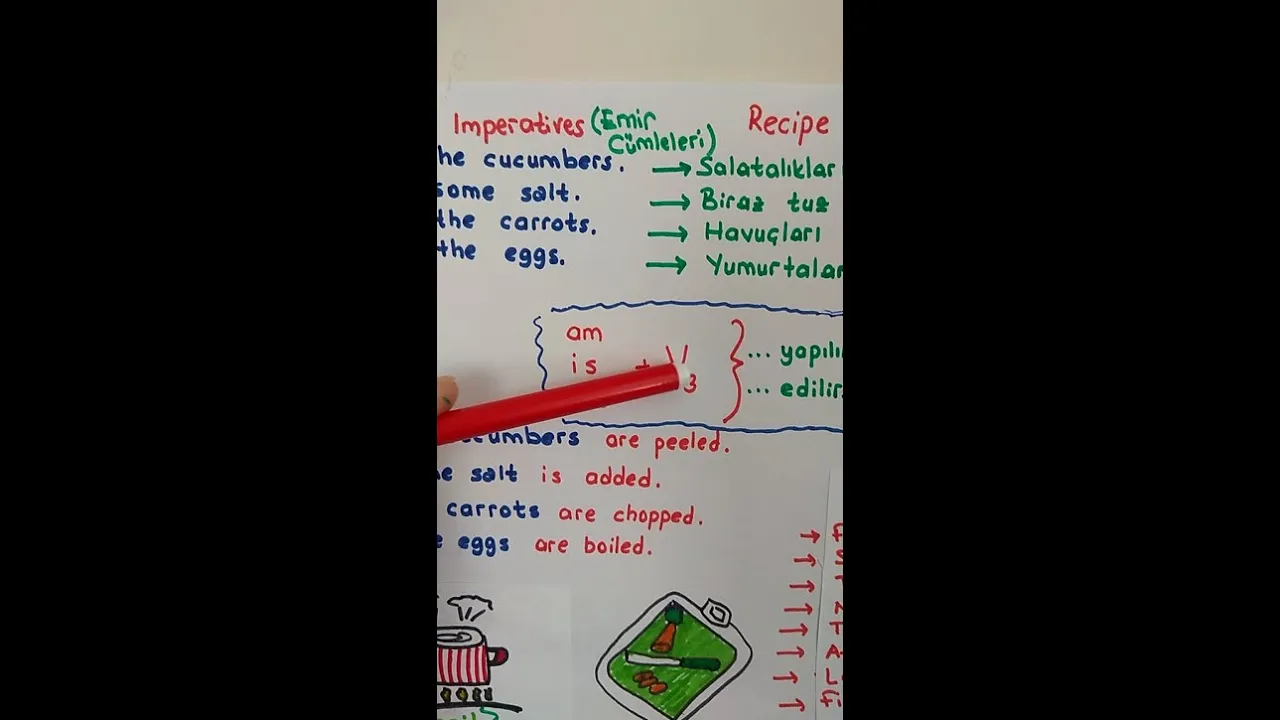 Imperatives (Emir Cümleleri) Recipe
he cucumbers. → Salatalıklar
some salt. → Biraz tuz
the carrots. → Havuçları
the eggs. → Yumurtalar
am
is + V3 } ... yapılı
... edilir.
cumbers are peeled.
e salt is added.
carrots are chopped.
e eggs are boiled.